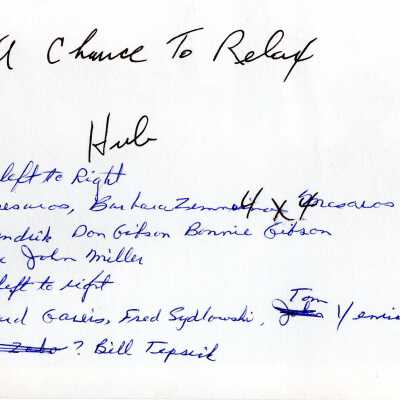 A Chance To Relax
Hub
left to Right
esaros, Barbara Zemm 4 x 4 esaros
ndrik Don Gibson Bonnie Gibson
John Miller
left to right
Gareis, Fred Sydlowski, Tom
Zabo ? Bill Tepsick